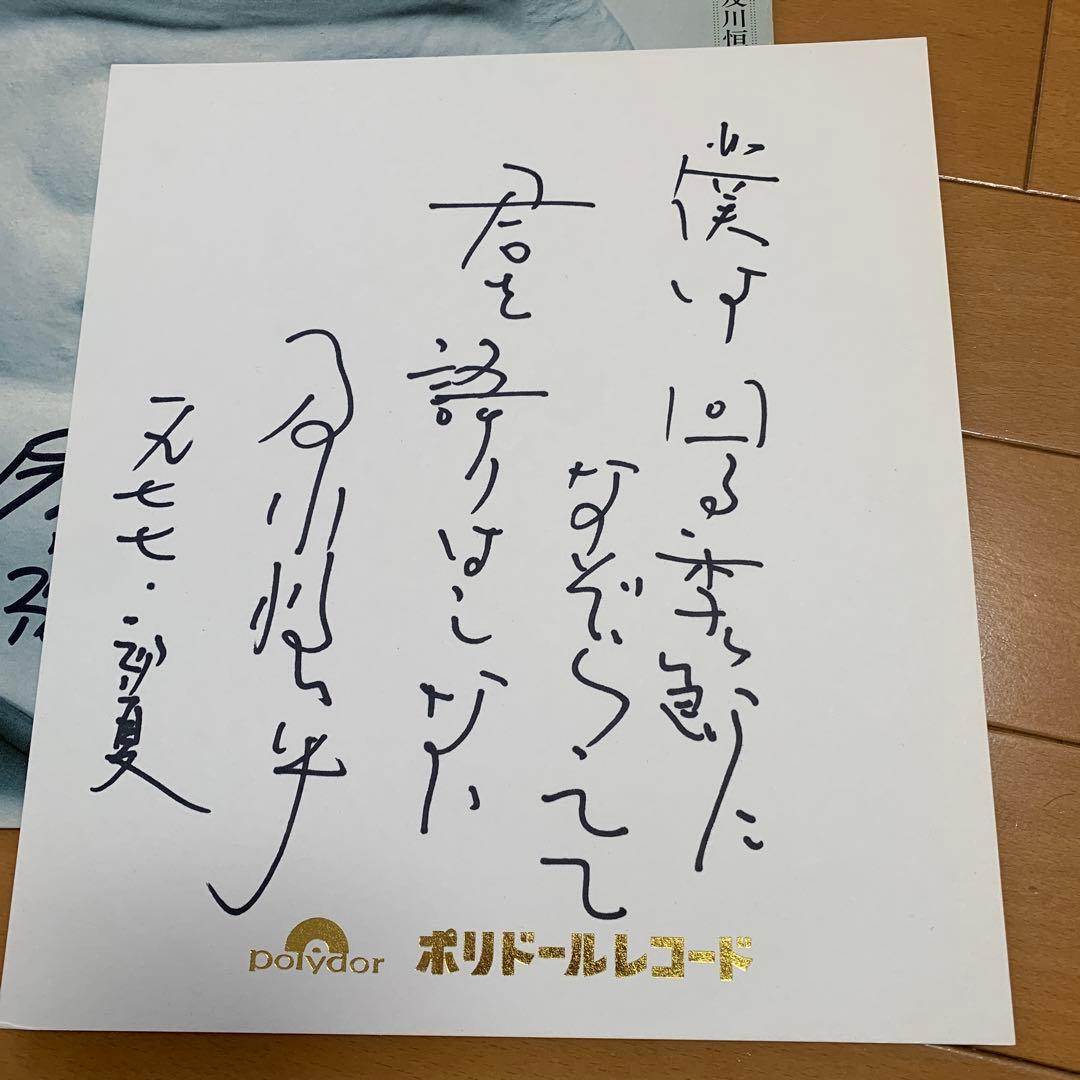 及川恒
僕は回る季節に
なぞらえて
君を語りはしない
及川恒平
一九七七・初夏
polydor
ポリドールレコード